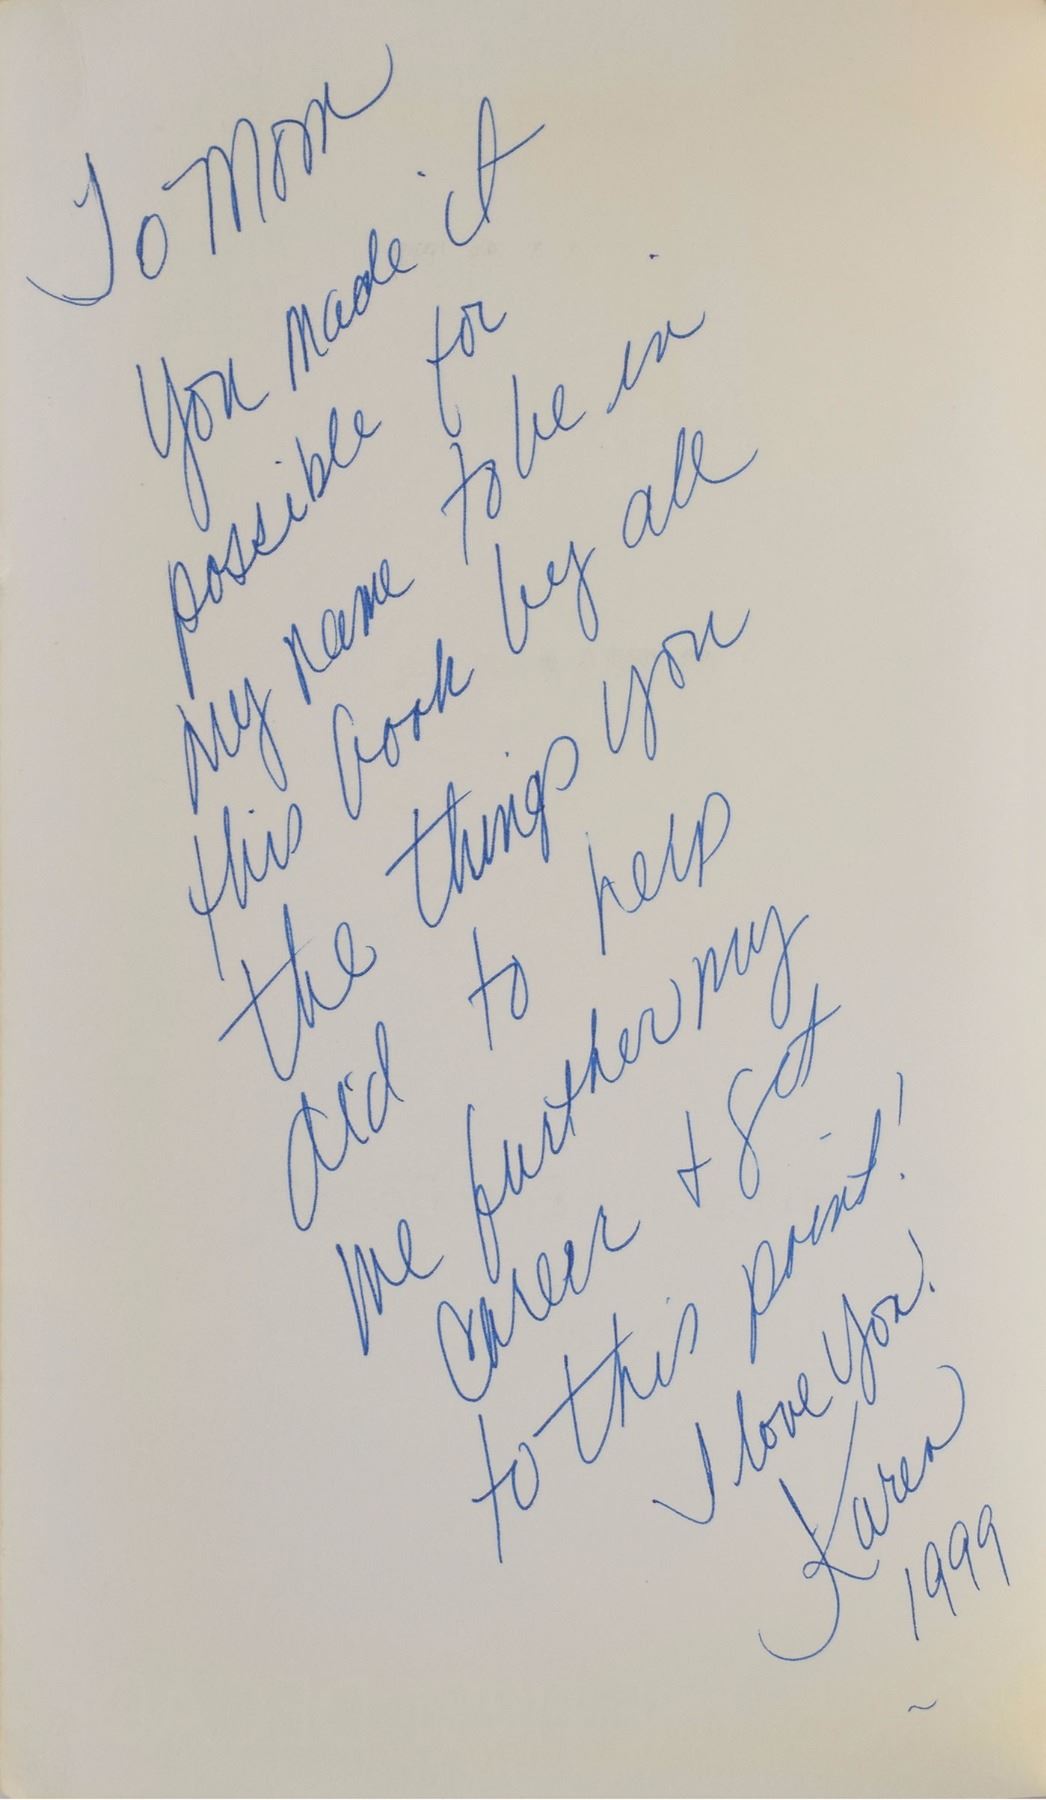 To Mom
You made it
possible for
my name to be in
this book by all
the things you
did to help
me further my
career + got
to this point!
I love you!
Karen
1999
~